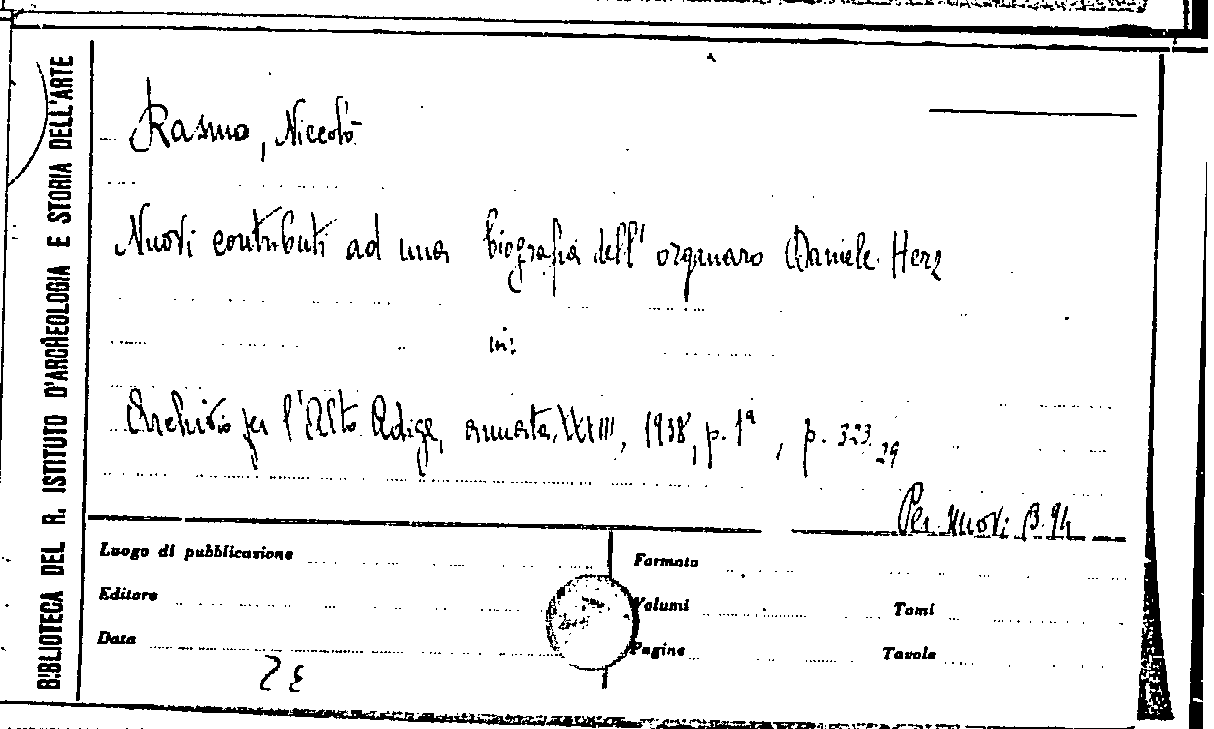 BIBLIOTECA DEL R. ISTITUTO D'ARCHEOLOGIA E STORIA DELL'ARTE
Rasmo, Niccolò
Nuovi contributi ad una biografia dell'organaro Daniele Herz
in:
Archivio per l'Alto Adige, annata XXXIII, 1938, p. 1ª, p. 323-29
Per. Nuovi B. 94
Luogo di pubblicazione
Formato
Editore
Volumi
Tomi
Data
Pagine
Tavole